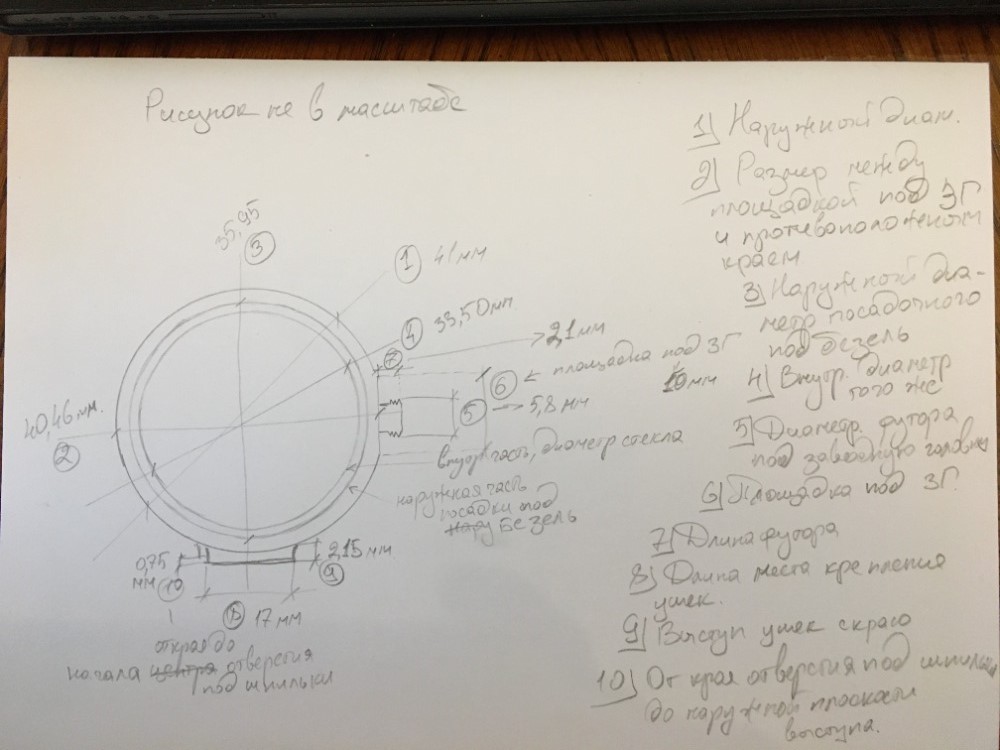 Рисунок не в масштабе
35,95
3
1 41 мм
4 33,50 мм
7 → 2,1 мм
6 ← площадка под ЗГ
10 мм
5 → 5,8 мм
40,46 мм.
2
внутр часть, диаметр стекла
наружная часть
посадки под
Безель
0,75
мм 10
2,15 мм
9
8 17 мм
от края до
начала центра отверстия
под шпильки
1) Наружный диам.
2) Размер между
площадкой под ЗГ
и противоположеным
краем
3) Наружный диа-
метр посадочного
под безель
4) Внутр. диаметр
того же
5) Диаметр футора
под заводную головку
6) Площадка под ЗГ.
7) Длина футора
8) Длина места крепления
ушек.
9) Выступ ушек с краю
10) От края отверстия под шпильки
до наружной плоскости
выступа.